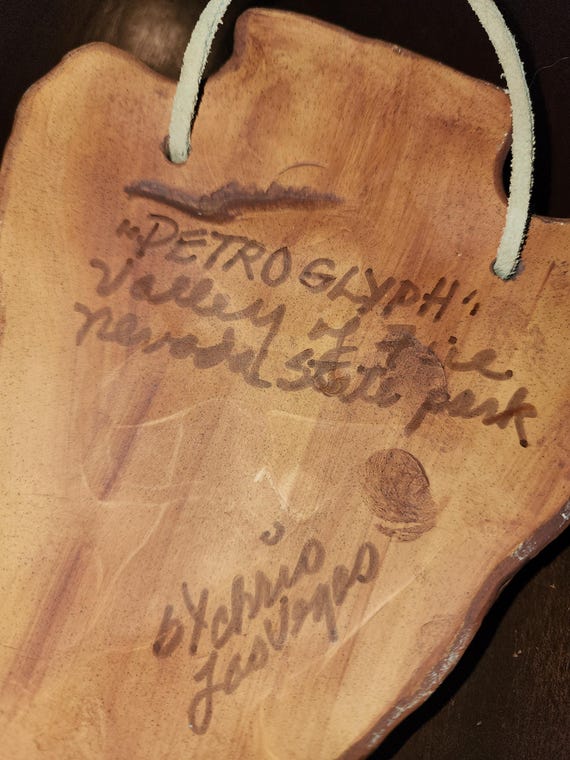 "PETROGLYPH"
Valley of Fire
nevada State park
bY chris
Las Vegas